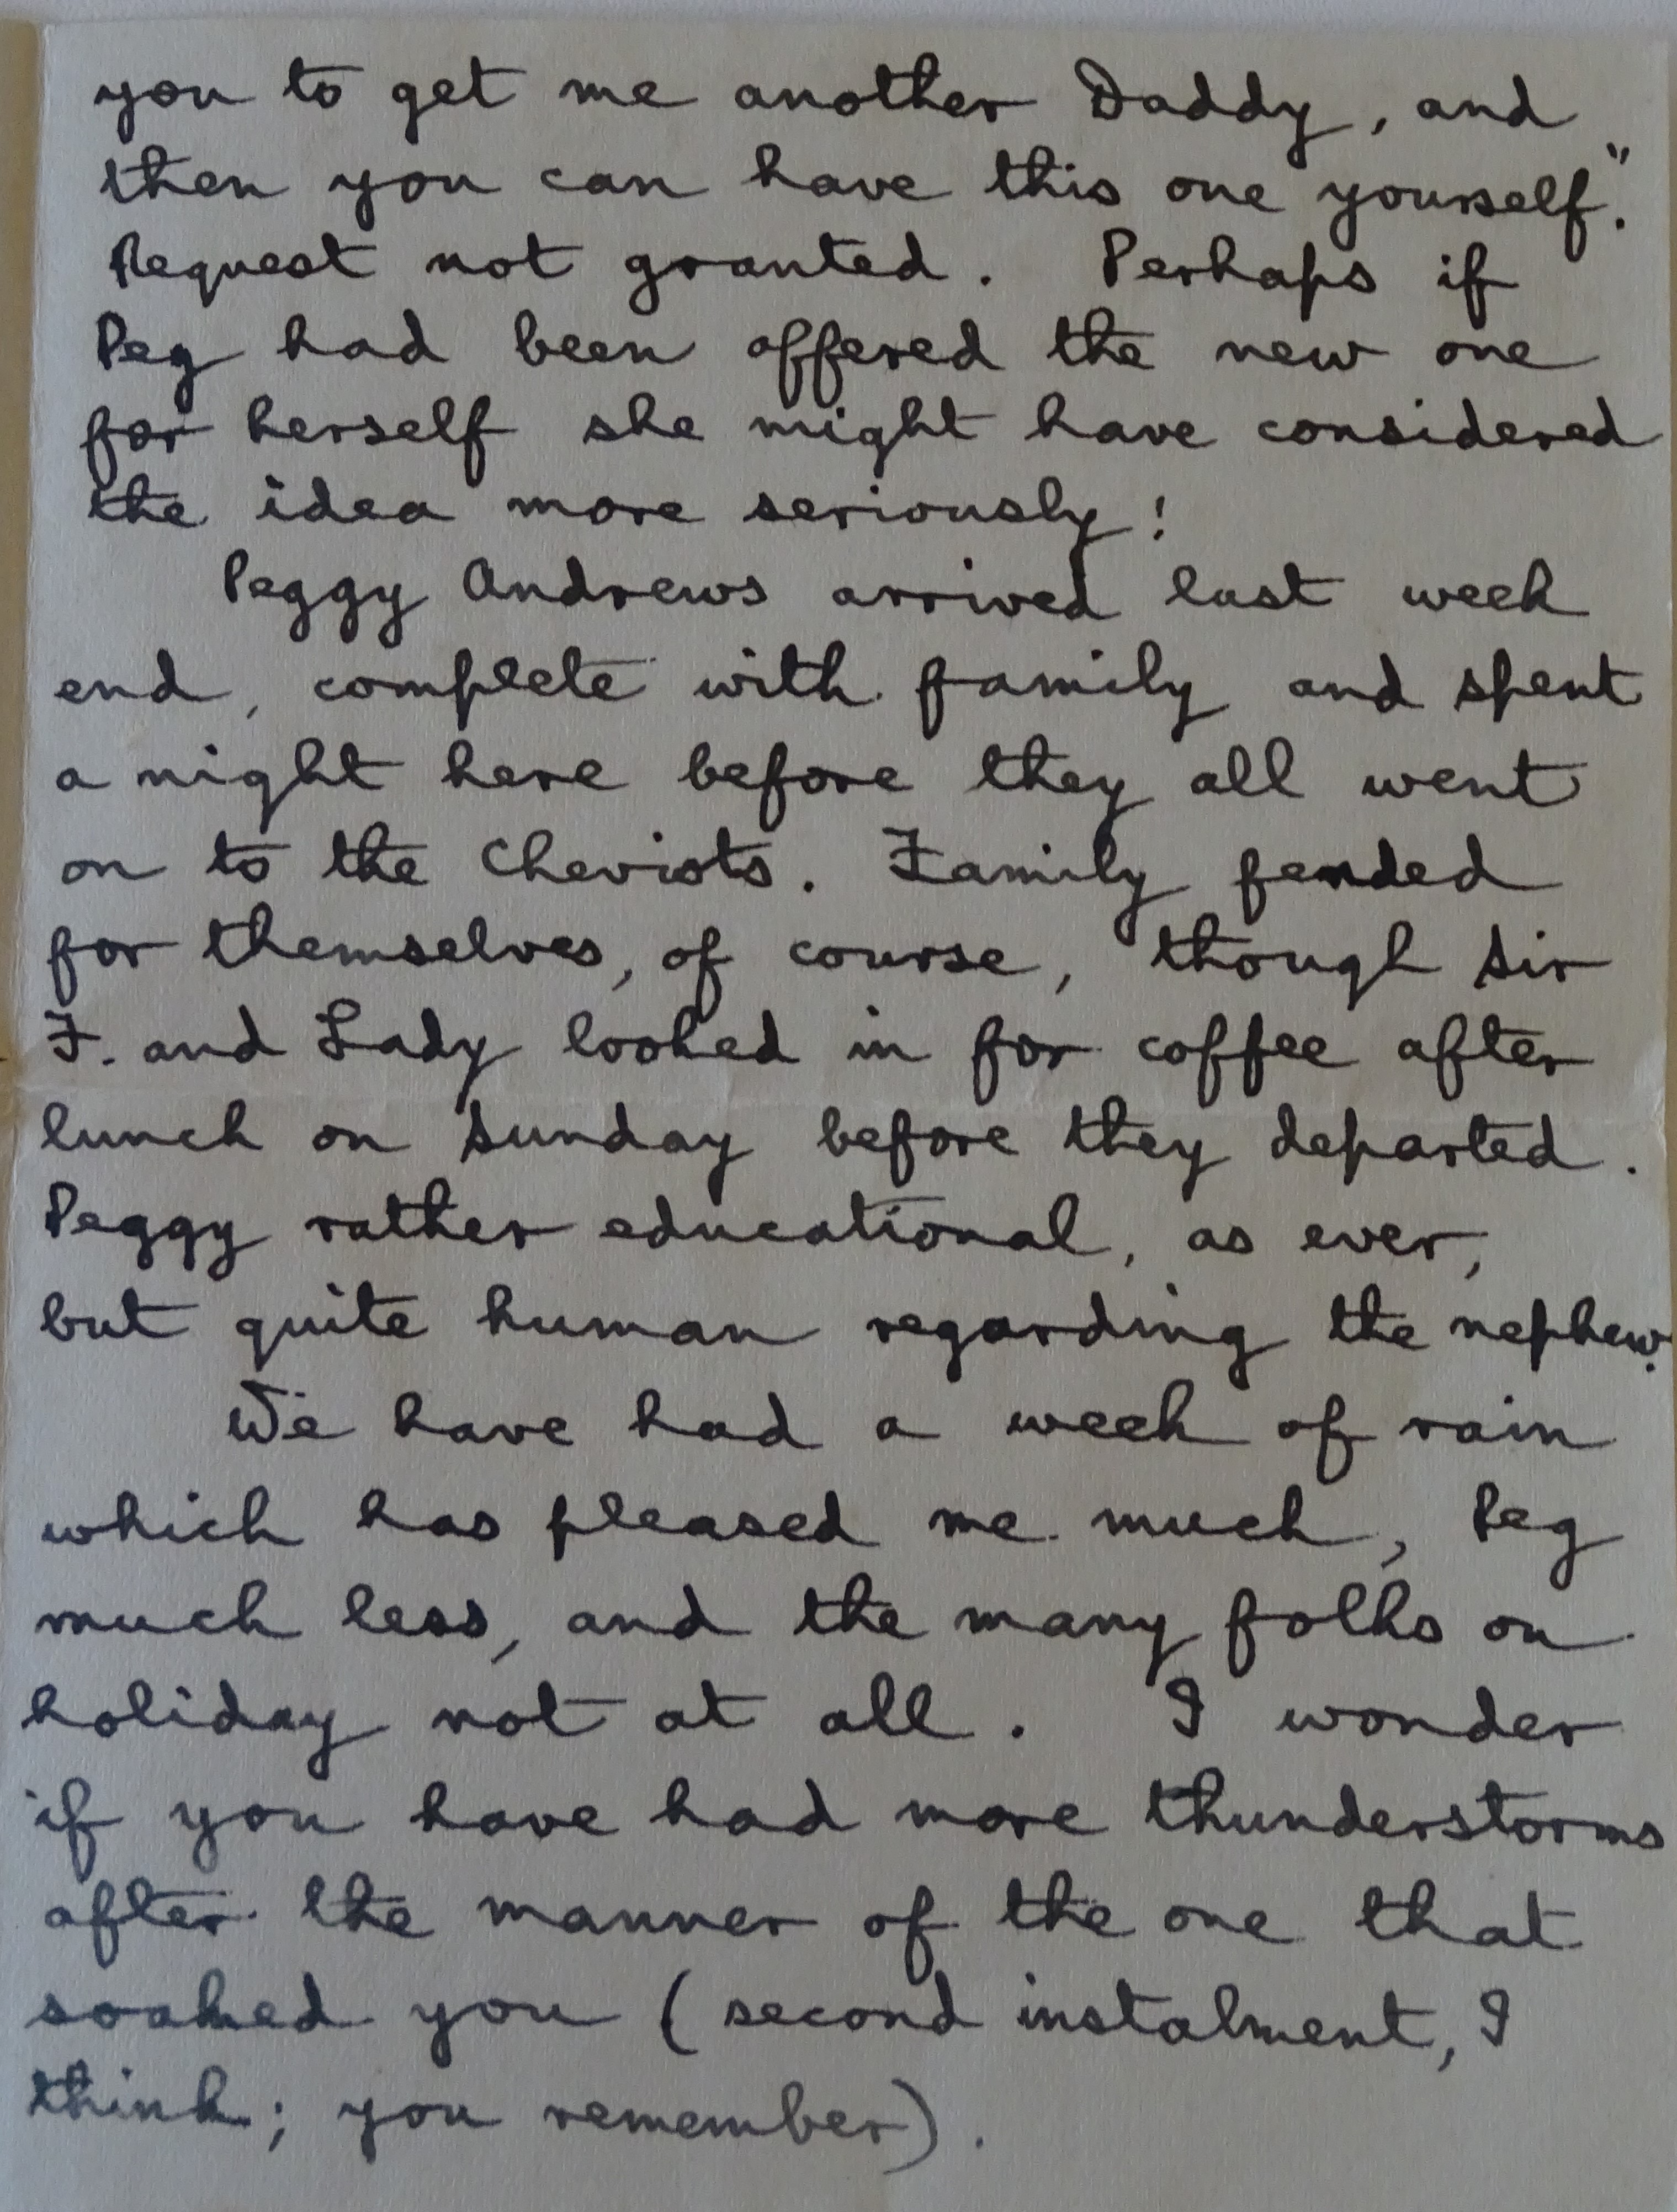 you to get me another Daddy, and
then you can have this one yourself."
Request not granted. Perhaps if
Peg had been offered the new one
for herself she might have considered
the idea more seriously!
Peggy Andrews arrived last week
end, complete with family and spent
a night here before they all went
on to the Cheviots. Family fended
for themselves, of course, though Sir
F. and Lady looked in for coffee after
lunch on Sunday before they departed.
Peggy rather educational, as ever,
but quite human regarding the nephew.
We have had a week of rain
which has pleased me much, Peg
much less, and the many folks on
holiday not at all. I wonder
if you have had more thunderstorms
after the manner of the one that
soaked you (second instalment, I
think; you remember).